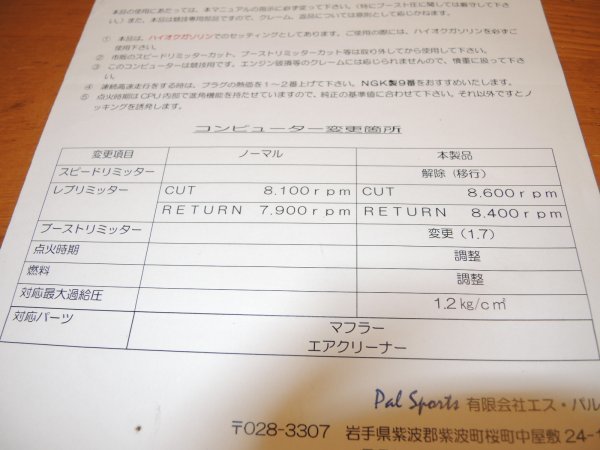 本品の使用にあたっては、本マニュアルの指示に必ず従って下さい。(特にブースト圧に関しては厳守して下
さい) また、本品は競技専用部品ですので、クレーム、返品については原則として応じかねます。
① 本品は、ハイオクガソリンでのセッティングとしてあります。ご使用の際には、ハイオクガソリンを必ずご
使用下さい。
② 市販のスピードリミッターカット、ブーストリミッターカット等は取り外してから使用して下さい。
③ このコンピューターは競技用です。エンジン破損等のクレームには応じられませんので、慎重に扱って下さ
い。
④ 連続高速走行をする時は、プラグの熱価を1~2番上げて下さい。NGK製9番をおすすめいたします。
⑤ 点火時期はCPU内部で進角機能を持たせていますので、純正の基準値に合わせて下さい。それ以外ですとノ
ッキングを誘発します。
コンピューター変更箇所
変更項目 ノーマル 本製品
スピードリミッター 解除 (移行)
レブリミッター CUT 8.100rpm CUT 8.600rpm
RETURN 7.900rpm RETURN 8.400rpm
ブーストリミッター 変更 (1.7)
点火時期 調整
燃料 調整
対応最大過給圧 1.2kg/c㎡
対応パーツ マフラー
エアクリーナー
Pal Sports 有限会社エス・パル
〒028-3307 岩手県紫波郡紫波町桜町中屋敷24-1